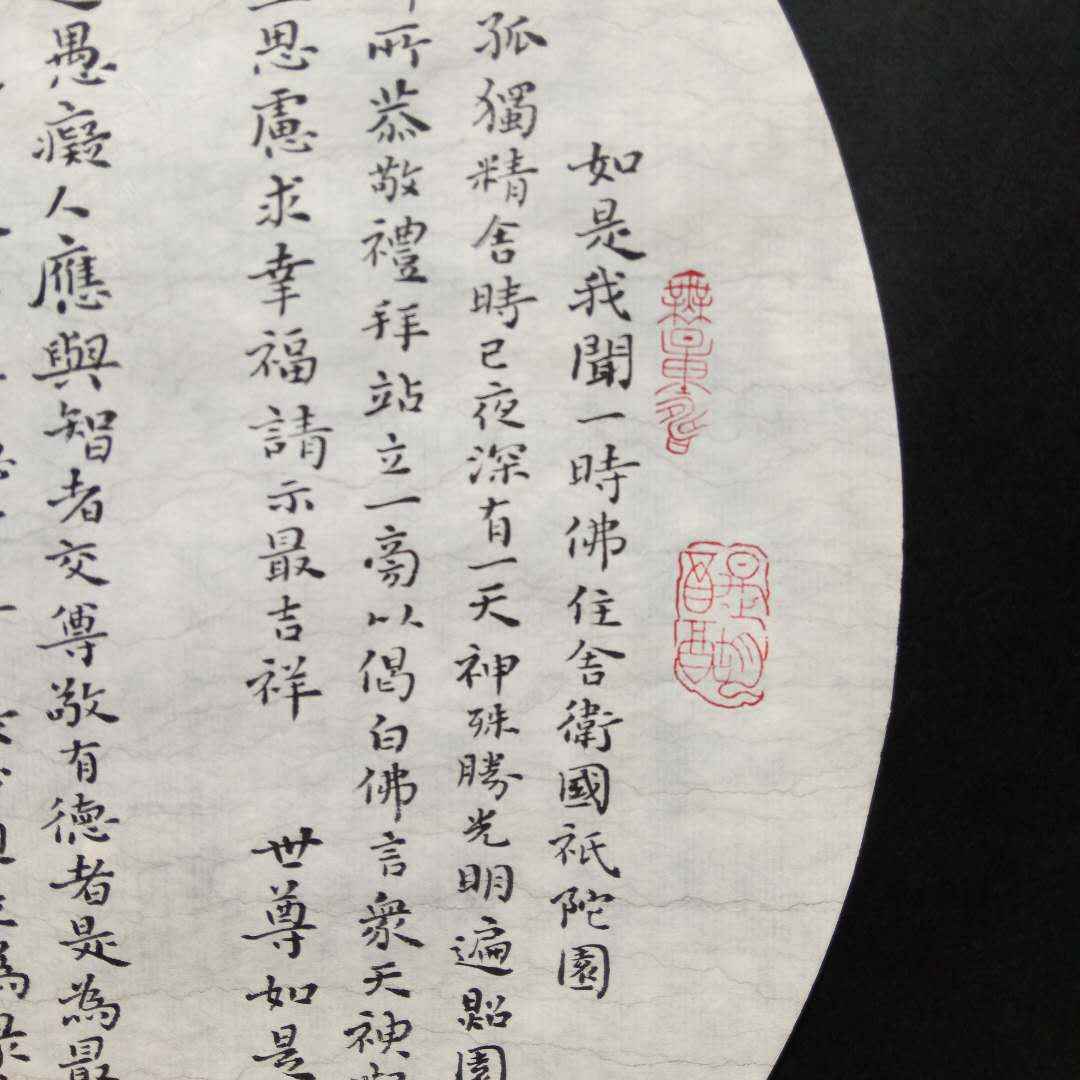 如是我聞一時佛住舍衛國祇陀園
孤獨精舍時已夜深有一天神殊勝光明遍照園
所恭敬禮拜站立一旁以偈白佛言眾天神
思慮求幸福請示最吉祥 世尊如是
愚癡人應與智者交尊敬有德者是為最